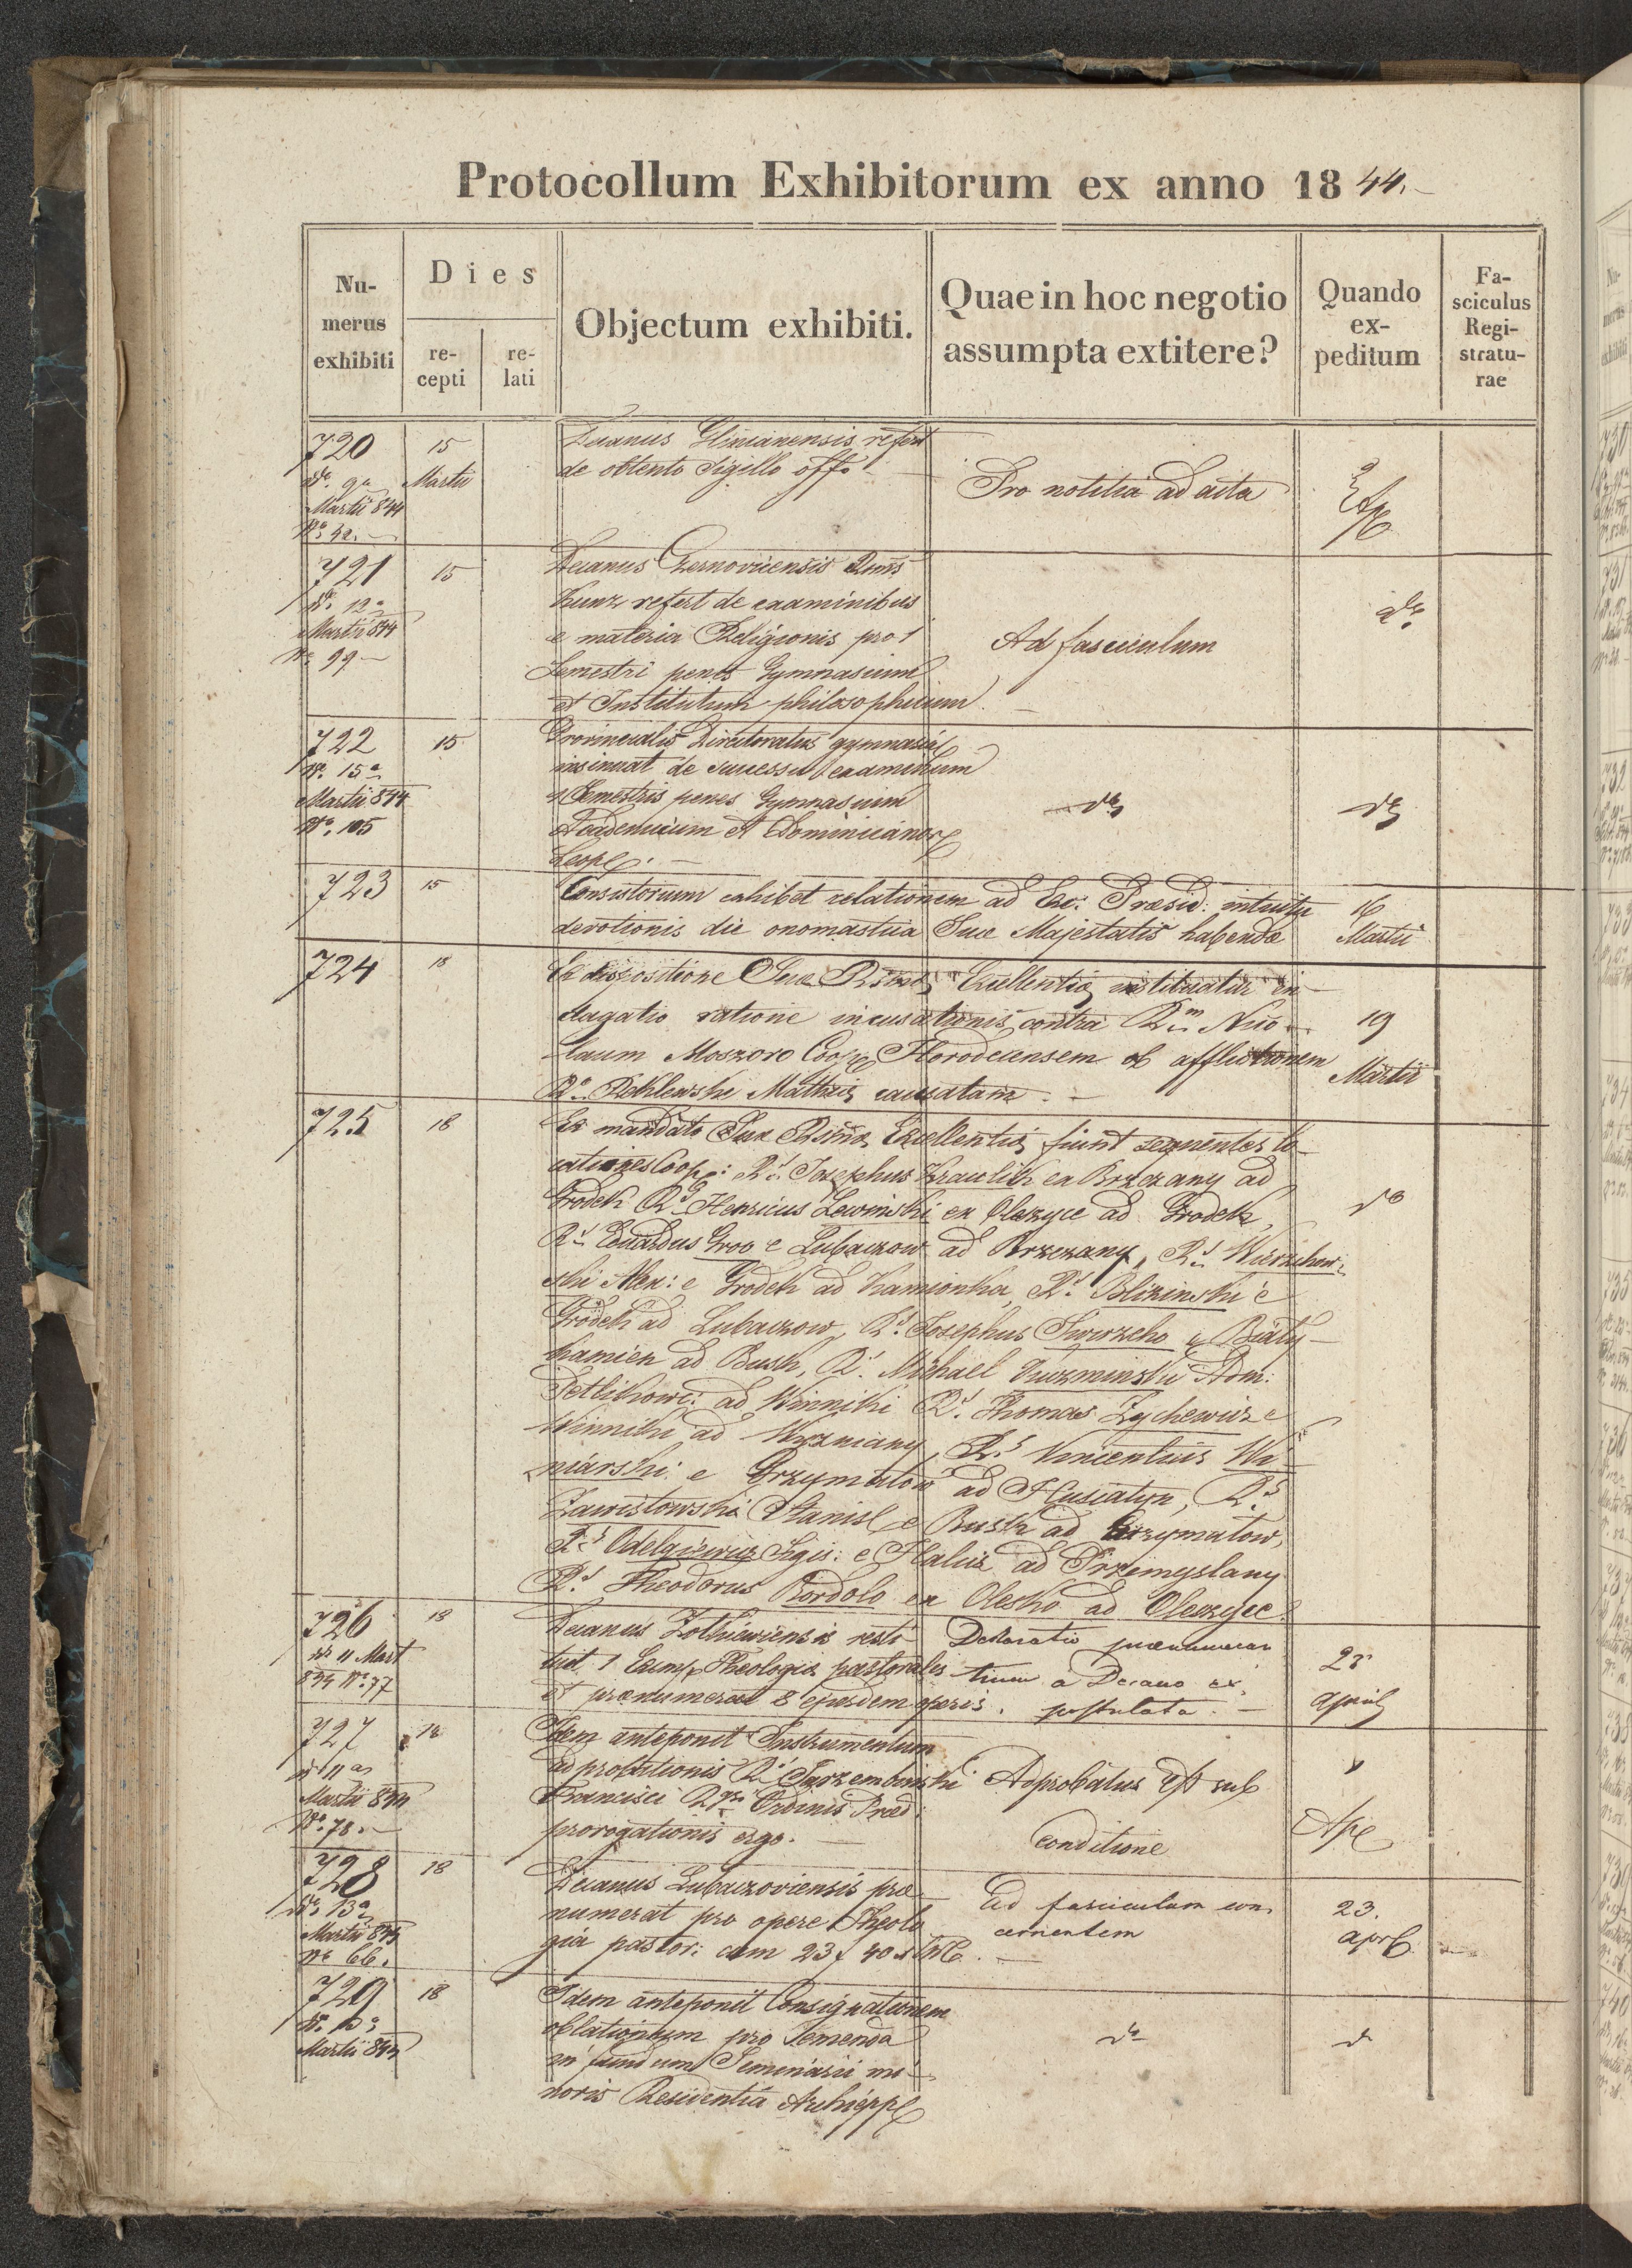 Protocollum Exhibitorum ex anno 1844.
Nu-
merus
exhibiti
Dies
re-
cepti
re-
lati
Objectum exhibiti.
Quae in hoc negotio
assumpta extitere?
Quando
ex-
peditum
Fa-
sciculus
Regi-
stratu-
rae
720
15
Martii
Martii 844
Decanus Glinianensis refert
de obtento sigillo offo
Pro notitia ad acta
721
15
Martii 844
No 99
Decanus Czernoviensis
Kunz refert de examinibus
e materia Religionis pro 1
Semestri penes Gymnasium
et Institutum philosophicum
Ad fasciculum
do
722
15
15a
Martii 844
No. 105
Provincialis Directoratus gymnasial
insinuat de successu examinum
1 Semestris penes Gymnasium
Academicum et Dominicanor
Leopol.
do
do
723
15
Consistorium exhibet relationem ad Exc: Praesid: intuitu
devotionis die onomastica Suae Majestatis habendae
16
Martii
724
18
Ex dispositione Suae Rsmae Excellentiae instituatur in-
dagatio ratione incusationis contra Rm Nico-
laum Moszoro Coop Horodecensem ob afflictionem
Matheis causatam.
19
Martii
725
18
Ex mandato Suae Rsmae Excellentiae fiunt sequentes lo-
cationes Coop: Rd Josephus Kraulik ex Brzezany ad
Grodek Rd Henricus Lewinski ex Oleszyce ad Grodek,
Rd Eduardus Groo e Lubaczow ad Brzezany, Rd Wierzchow-
ski Alex: e Grodek ad Kamionka, Rd Blizinski e
Grodek ad Lubaczow, Rd Josephus Skwrzcho e Bialy-
kamien ad Busk, Rd Michael Kuczminski Adm:
Petlikowc: ad Winniki Rd Thomas Zychewicz e
Winniki ad, Rd Vincentius Wi-
niarski e Grzymalow ad Husiatyn, Rd
Zawistowski Stanisl e Busk ad Grzymalow,
Rd Odelgiewicz Sigis: e Halicz ad Przemyslany
Rd Theodorus Bordolo ex Olesko ad Oleszyce.
do
726
18
11 Mart
844 No 77
Decanus Zolkieviensis resti-
tuit 1 Exemp Theologiae pastoralis
et praenumerat 8 ejusdem operis.
Declaratio praenumeran
tium a Decano ex-
postulata.
April
727
18
Martii 844
No. 78.
Idem anteponit Instrumentum
adprobationis Rd Jarzembinski
Francisci Ordinis Praed:
prorogationis ergo.
Adprobatus est sub
conditione
Apl
728
18
13a
Martii 844
No 66.
Decanus Lubaczoviensis prae-
numerat pro opere Theolo
gia pastor: cum 23 f 40 x
Ad fasciculum con-
cernentem
23.
April
729
18
Martii 844
Idem anteponit Consignationem
oblationum pro
in fundum Seminarii mi-
noris Residentia Archiepp
do
do